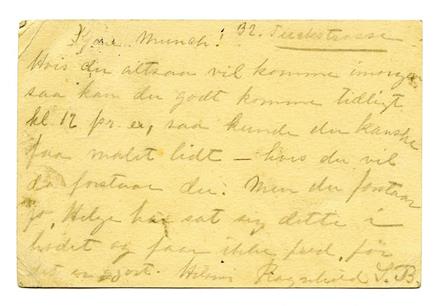 32. Turkstrasse
Kjære Munch!
Hvis du altsaa vil komme imorgen
saa kan du godt komme tidligt
kl. 12 pr. ex, saa kunde du kanske
faa malet lidt — hvis du vil
da forstaar du. Men du forstaar
jo, Helge har sat sig dette i
hodet og faar ikke fred, før
det er gjort. Hilsen Ragnhild S. B.